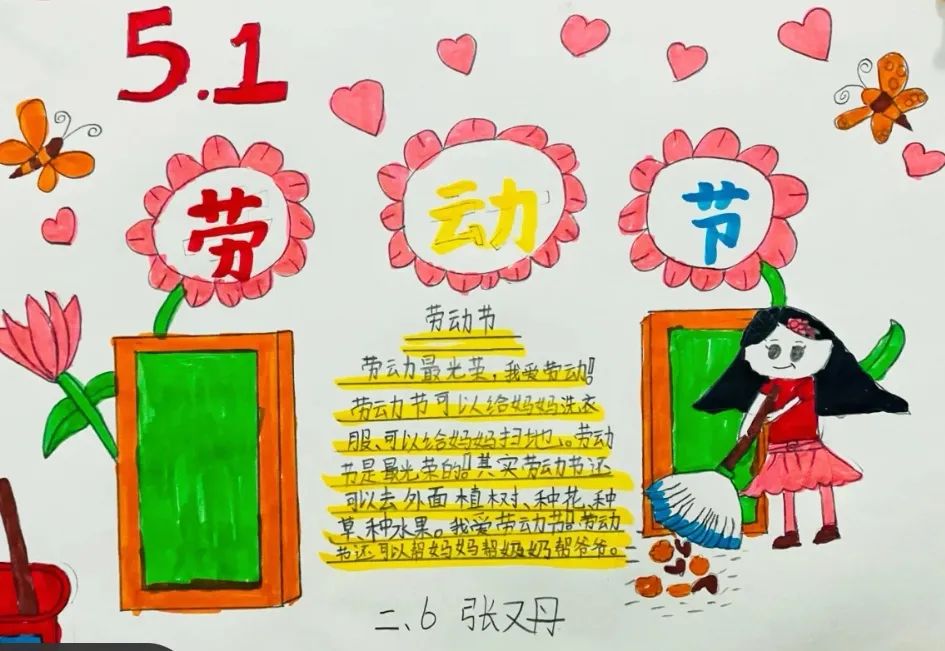 5.1
劳动节
劳动节
劳动最光荣,我爱劳动!
劳动节可以给妈妈洗衣
服、可以给妈妈扫地、。劳动
节是最光荣的!其实劳动节还
可以去外面植树、种花、种
草、种水果。我爱劳动节!劳动
节还可以帮妈妈帮奶奶帮爷爷。
二、6 张又丹